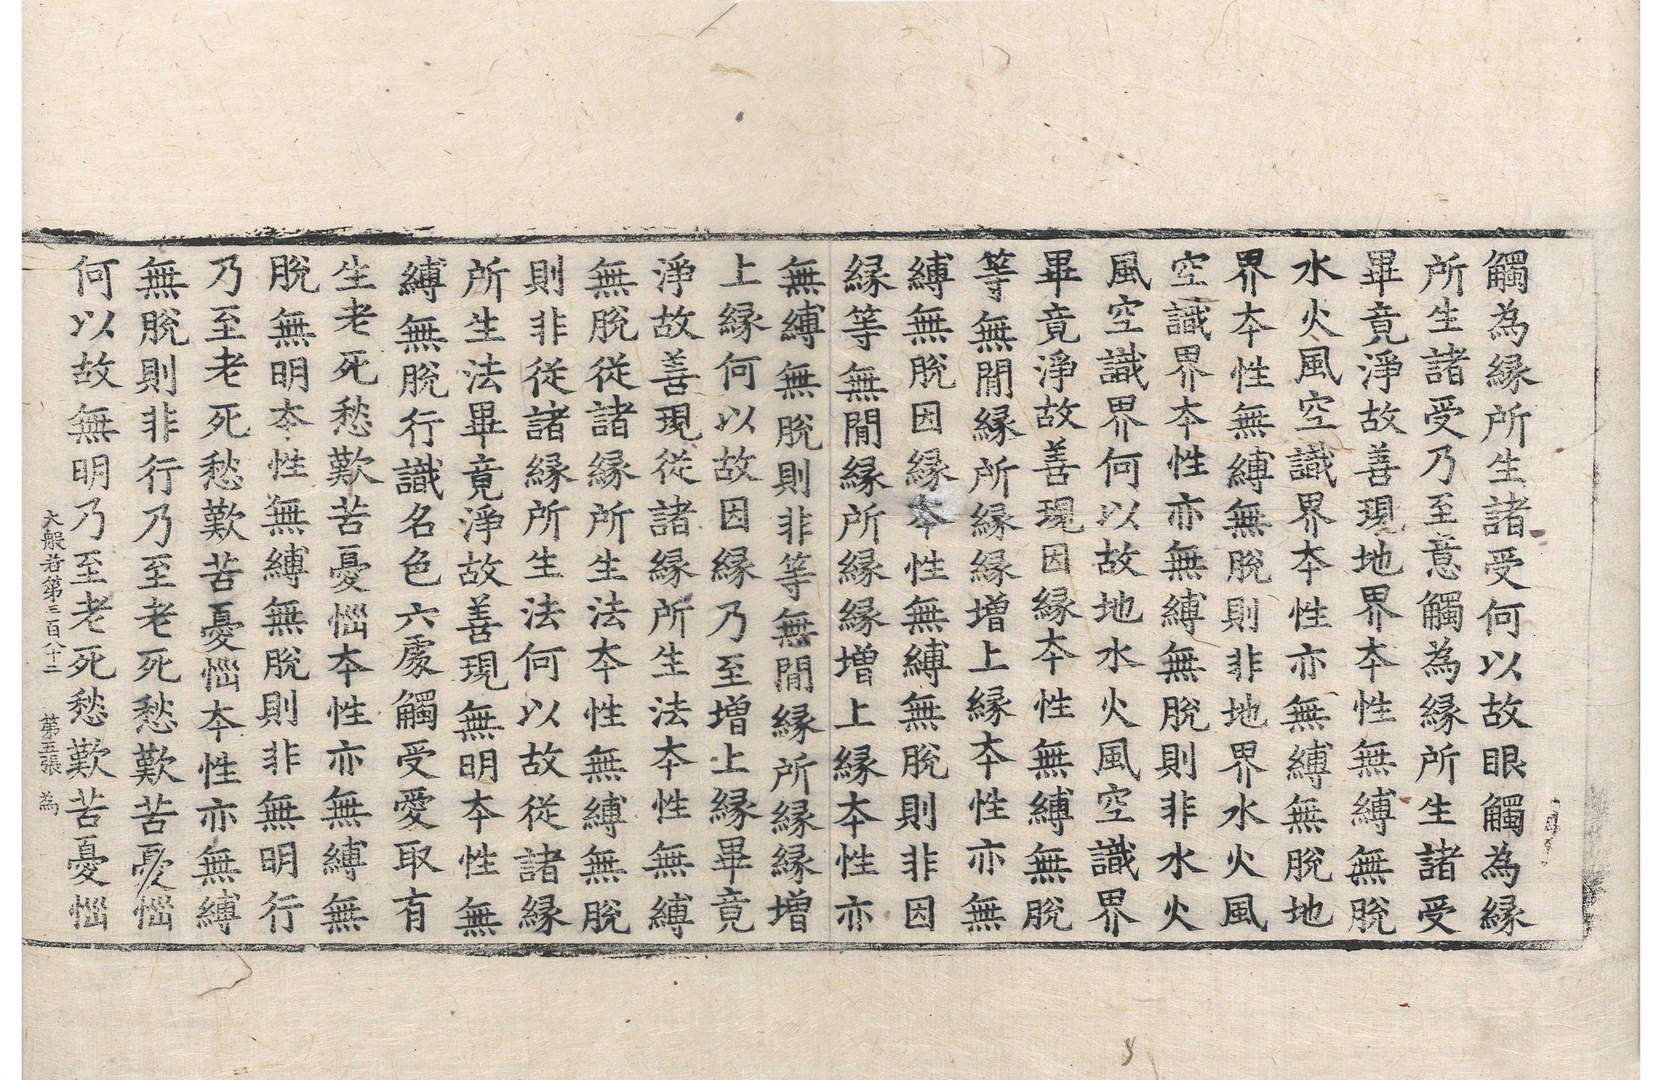 觸為縁所生諸受何以故眼觸為縁
所生諸受乃至意觸為縁所生諸受
畢竟淨故善現地界夲性無縛無脫
水火風空識界夲性亦無縛無脫地
界夲性無縛無脫則非地界水火風
空識界夲性亦無縛無脫則非水火
風空識界何以故地水火風空識界
畢竟淨故善現因縁夲性無縛無脫
等無閒縁所縁縁增上縁夲性亦無
縛無脫因縁夲性無縛無脫則非因
縁等無閒縁所縁縁增上縁夲性亦
無縛無脫則非等無閒縁所縁縁增
上縁何以故因縁乃至增上縁畢竟
淨故善現從諸縁所生法夲性無縛
無脫從諸縁所生法夲性無縛無脫
則非從諸縁所生法何以故從諸縁
所生法畢竟淨故善現無明夲性無
縛無脫行識名色六處觸受愛取有
生老死愁歎苦憂惱夲性亦無縛無
脫無明夲性無縛無脫則非無明行
乃至老死愁歎苦憂惱夲性亦無縛
無脫則非行乃至老死愁歎苦憂惱
何以故無明乃至老死愁歎苦憂惱
大般若第三百八十二 第五張 為